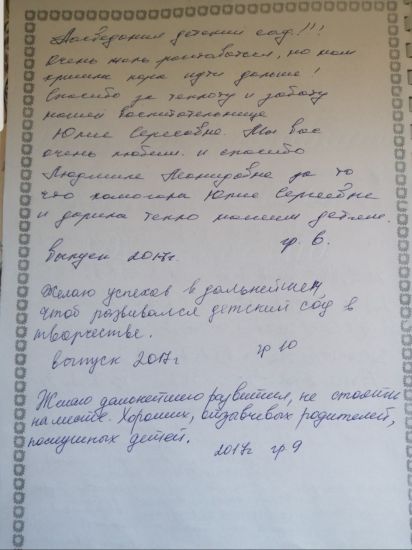 Досведания детский сад!!!
Очень жаль расставаться, но нам
пришла пора идти дальше!
Спасибо за теплоту и заботу
нашей воспитательнице
Юлие Сергеевне. Мы вас
очень любим. и спасибо
Людмиле Леонидовне за то
что помогала Юлие Сергеевне
и дарила тепло нашим детям.
Выпуск 2017г. гр. 6.
Желаю успехов в дальнейшем,
чтоб развивался детский сад в
творчестве.
выпуск 2017г гр 10
Желаю дальнейшего развития, не стоять
на месте. Хороших, отзывчивых родителей,
послушных детей.
2017г гр 9